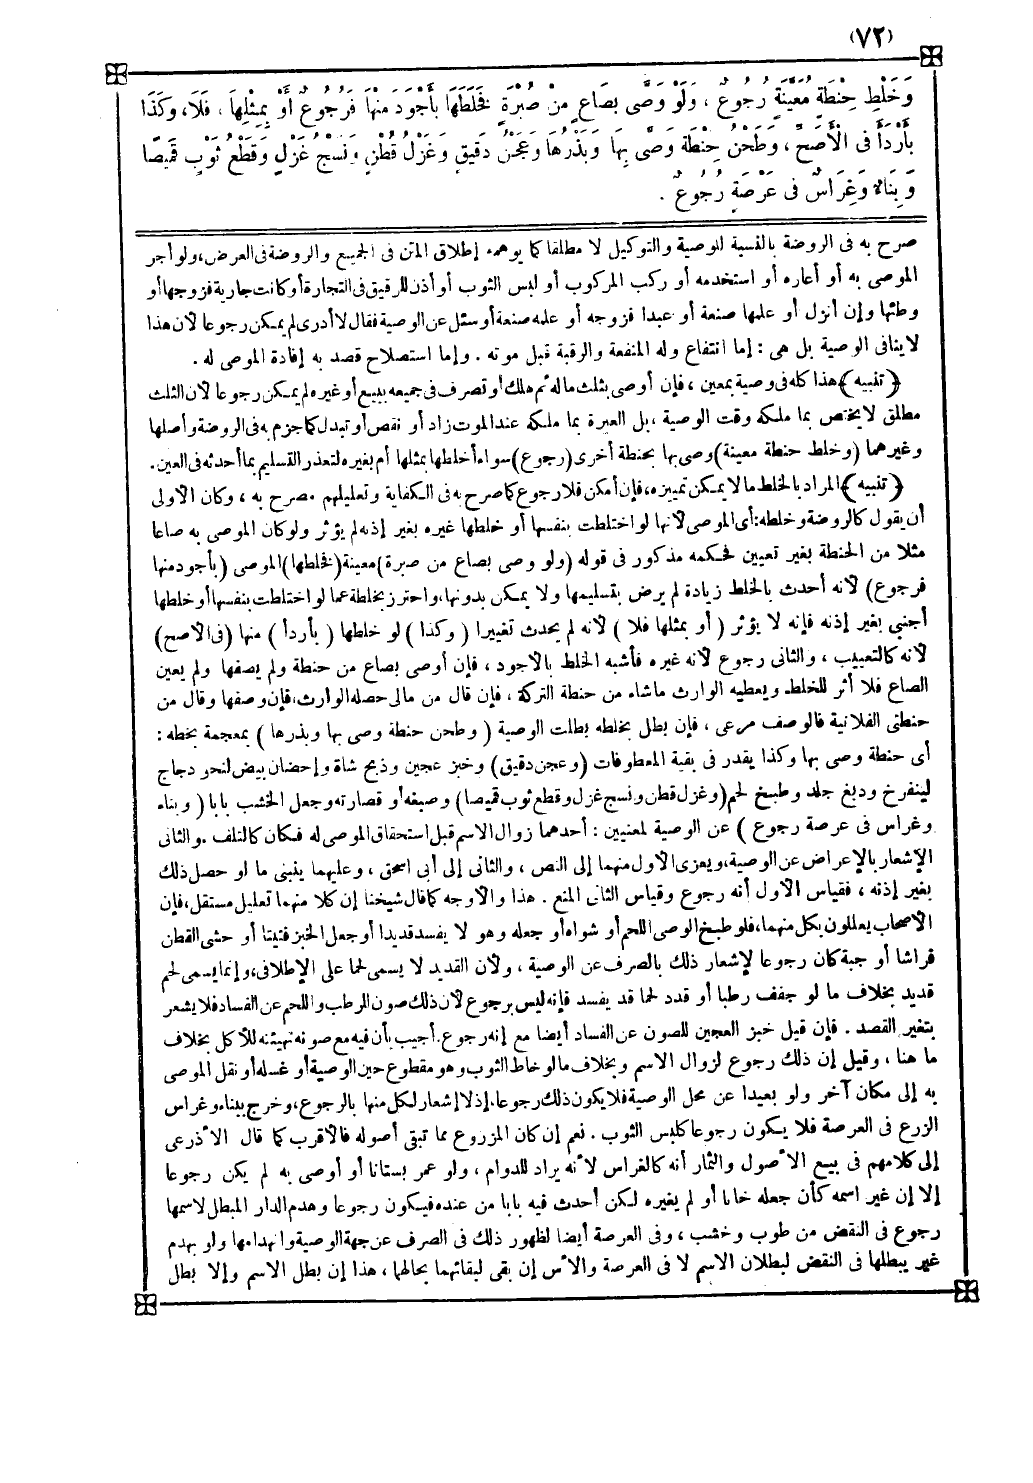 (٧٢)
وَخَلْطُ حِنْطَةٍ مُعَيَّنَةٍ رُجُوعٌ ، وَلَوْ وَصَّى بِصَاعٍ مِنْ صُبْرَةٍ فَخَلَطَهَا بِأَجْوَدَ مِنْهَا فَرُجُوعٌ أَوْ بِمِثْلِهَا ، فَلَا ، وَكَذَا
بِأَرْدَأَ فِى الْأَصَحِّ ، وَطَحْنُ حِنْطَةٍ وَصَّى بِهَا وَبَذْرُهَا وَعَجْنُ دَقِيقٍ وَغَزْلُ قُطْنٍ وَنَسْجُ غَزْلٍ وَقَطْعُ ثَوْبٍ قَمِيصًا
وَبِنَاءٌ وَغِرَاسٌ فى عَرْصَةٍ رُجُوعٌ .
صرح به فى الروضة بالنسبة للوصية والتوكيل لا مطلقا كما يوهمه إطلاق المتن فى الجميع والروضة فى العرض، ولو أجر
الموصى به أو أعاره أو استخدمه أو ركب المركوب أو لبس الثوب أو أذن للرقيق فى التجارة أو كانت جارية فزوجها أو
وطئها وإن أنزل أو علمها صنعة أو عبدا فزوجه أو علمه صنعة أو سئل عن الوصية فقال لا أدرى لم يمكن رجوعا لأن هذا
لا ينافى الوصية بل هى : إما انتفاع وله المنفعة والرقبة قبل موته . وإما استصلاح قصد به إفادة الموصى له .
( تنبيه ) هذا كله فى وصية بمعين ، فإن أوصى بثلث ماله ثم هلك أو تصرف فى جميعه ببيع أو غيره لم يمكن رجوعا لأن الثلث
مطلق لا يختص بما ملكه وقت الوصية ، بل العبرة بما ملكه عند الموت زاد أو نقص أو تبدل كما جزم به فى الروضة وأصلها
وغيرهما (وخلط حنطة معينة) وصى بها بحنطة أخرى (رجوع) سواء أخلطها بمثلها أم بغيره لتعذر التسليم بما أحدثه فى العين.
( تنبيه ) المراد بالخلط ما لا يمكن تمييزه، فإن أمكن فلا رجوع كما صرح به فى الكفاية وتعليلهم مصرح به ، وكان الأولى
أن يقول كالروضة وخلطه: أى الموصى لأنها لو اختلطت بنفسها أو خلطها غيره بغير إذنه لم يؤثر ولو كان الموصى به صاعا
مثلا من الحنطة بغير تعيين فحكمه مذكور فى قوله (ولو وصى بصاع من صبرة) معينة (فخلطها) الموصى (بأجود منها
فرجوع) لأنه أحدث بالخلط زيادة لم يرض بتسليمها ولا يمكن بدونها، واحترز بخلطه عما لو اختلطت بنفسها أو خلطها
أجنبى بغير إذنه فإنه لا يؤثر ( أو بمثلها فلا ) لأنه لم يحدث تغييرا ( وكذا ) لو خلطها ( بأردأ ) منها (فى الأصح)
لأنه كالتعييب ، والثانى رجوع لأنه غيره فأشبه الخلط بالأجود ، فإن أوصى بصاع من حنطة ولم يصفها ولم يعين
الصاع فلا أثر للخلط ويعطيه الوارث ماشاء من حنطة التركة ، فإن قال من مالى حصله الوارث، فإن وصفها وقال من
حنطتى الفلانية فالوصف مرعى ، فإن بطل بخلطه بطلت الوصية ( وطحن حنطة وصى بها وبذرها ) بمعجمة بخطه :
أى حنطة وصى بها وكذا يقدر فى بقية المعطوفات (وعجن دقيق) وخبز عجين وذبح شاة وإحضان بيض لنحو دجاج
ليتفرخ ودبغ جلد وطبخ لحم (وغزل قطن ونسج غزل وقطع ثوب قميصا) وصبغه أو قصارته وجعل الخشب بابا ( وبناء
وغراس فى عرصة رجوع ) عن الوصية لمعنيين : أحدهما زوال الاسم قبل استحقاق الموصى له فكان كالتلف . والثانى
الإشعار بالإعراض عن الوصية، ويعزى الأول منهما إلى النص ، والثانى إلى أبى اسحق ، وعليهما يتبنى ما لو حصل ذلك
بغير إذنه ، فقياس الأول أنه رجوع وقياس الثانى المنع . هذا والأوجه كما قال شيخنا إن كلا منهما تعليل مستقل، فإن
الأصحاب يعللون بكل منهما، فلو طبخ الوصى اللحم أو شواه أو جعله وهو لا يفسد قديدا أو جعل الخبز فتيتا أو حشى القطن
فراشا أو جبة كان رجوعا لإشعار ذلك بالصرف عن الوصية ، ولأن القديد لا يسمى لحما على الإطلاق، وإنما يسمى لحم
قديد بخلاف ما لو جفف رطبا أو قدد لحما قد يفسد فإنه ليس برجوع لأن ذلك صون للرطب واللحم عن الفساد فلا يشعر
بتغير القصد . فإن قيل خبز العجين للصون عن الفساد أيضا مع إنه رجوع. أجيب بأن فيه مع صونه تهيئته للأكل بخلاف
ما هنا ، وقيل إن ذلك رجوع لزوال الاسم وبخلاف ما لو خاط الثوب وهو مقطوع حين الوصية أو غسله أو نقل الموصى
به إلى مكان آخر ولو بعيدا عن محل الوصية فلا يكون ذلك رجوعا، إذ لا إشعار لكل منها بالرجوع، وخرج ببناء وغراس
الزرع فى العرصة فلا يكون رجوعا كلبس الثوب . نعم إن كان المزروع مما تبقى أصوله فالأقرب كما قال الأذرعى
إلى كلامهم فى بيع الأصول والثمار أنه كالغراس لأنه يراد للدوام ، ولو عمر بستانا أو أوصى به لم يكن رجوعا
إلا إن غير اسمه كأن جعله خانا أو لم يغيره لكن أحدث فيه بابا من عنده فيكون رجوعا وهدم الدار المبطل لاسمها
رجوع فى النقض من طوب وخشب ، وفى العرصة أيضا لظهور ذلك فى الصرف عن جهة الوصية وانهدامها ولو بهدم
غير يبطلها فى النقض لبطلان الاسم لا فى العرصة والأس إن بقى لبقائهما بحالهما ، هذا إن بطل الاسم وإلا بطل